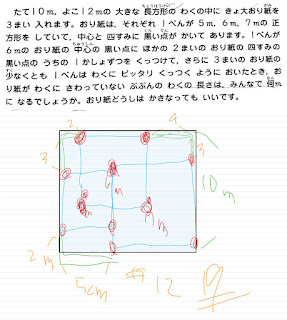 たて10m, よこ12mの 大きな 長方形の わくの中に きょ大おり紙を
3まい 入れます。おり紙は、それぞれ 1ぺんが 5m, 6m, 7mの 正方形を
していて、中心と 四すみに 黒い点が かいて あります。1ぺんが
6mの おり紙の 中心の 黒い点に ほかの 2まいの おり紙の 四すみの
黒い点の うちの 1かしょずつを くっつけて、さらに 3まいの おり紙が
少なくとも 1ぺんは わくに ピッタリ くっつく ように おいたとき, お
り紙が わくに さわっていない ぶぶんの わくの 長さは、みんなで 何m
に なるでしょうか。おり紙どうしは かさなっても いいです。
2
4
3
3
6m
10m
5m
7m
2m
5cm
12
19